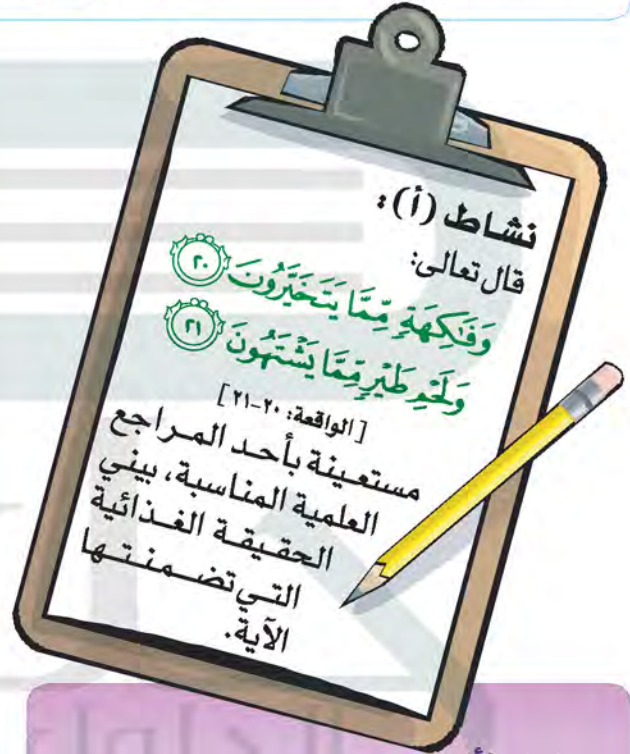 نشاط (أ):
قال تعالى:
وَفَٰكِهَةٖ مِّمَّا يَتَخَيَّرُونَ ٢٠
وَلَحۡمِ طَيۡرٖ مِّمَّا يَشۡتَهُونَ ٢١
[الواقعة: ٢٠-٢١]
مستعينة بأحد المراجع
العلمية المناسبة، بيني
الحقيقة الغذائية
التي تضمنتها
الآية.